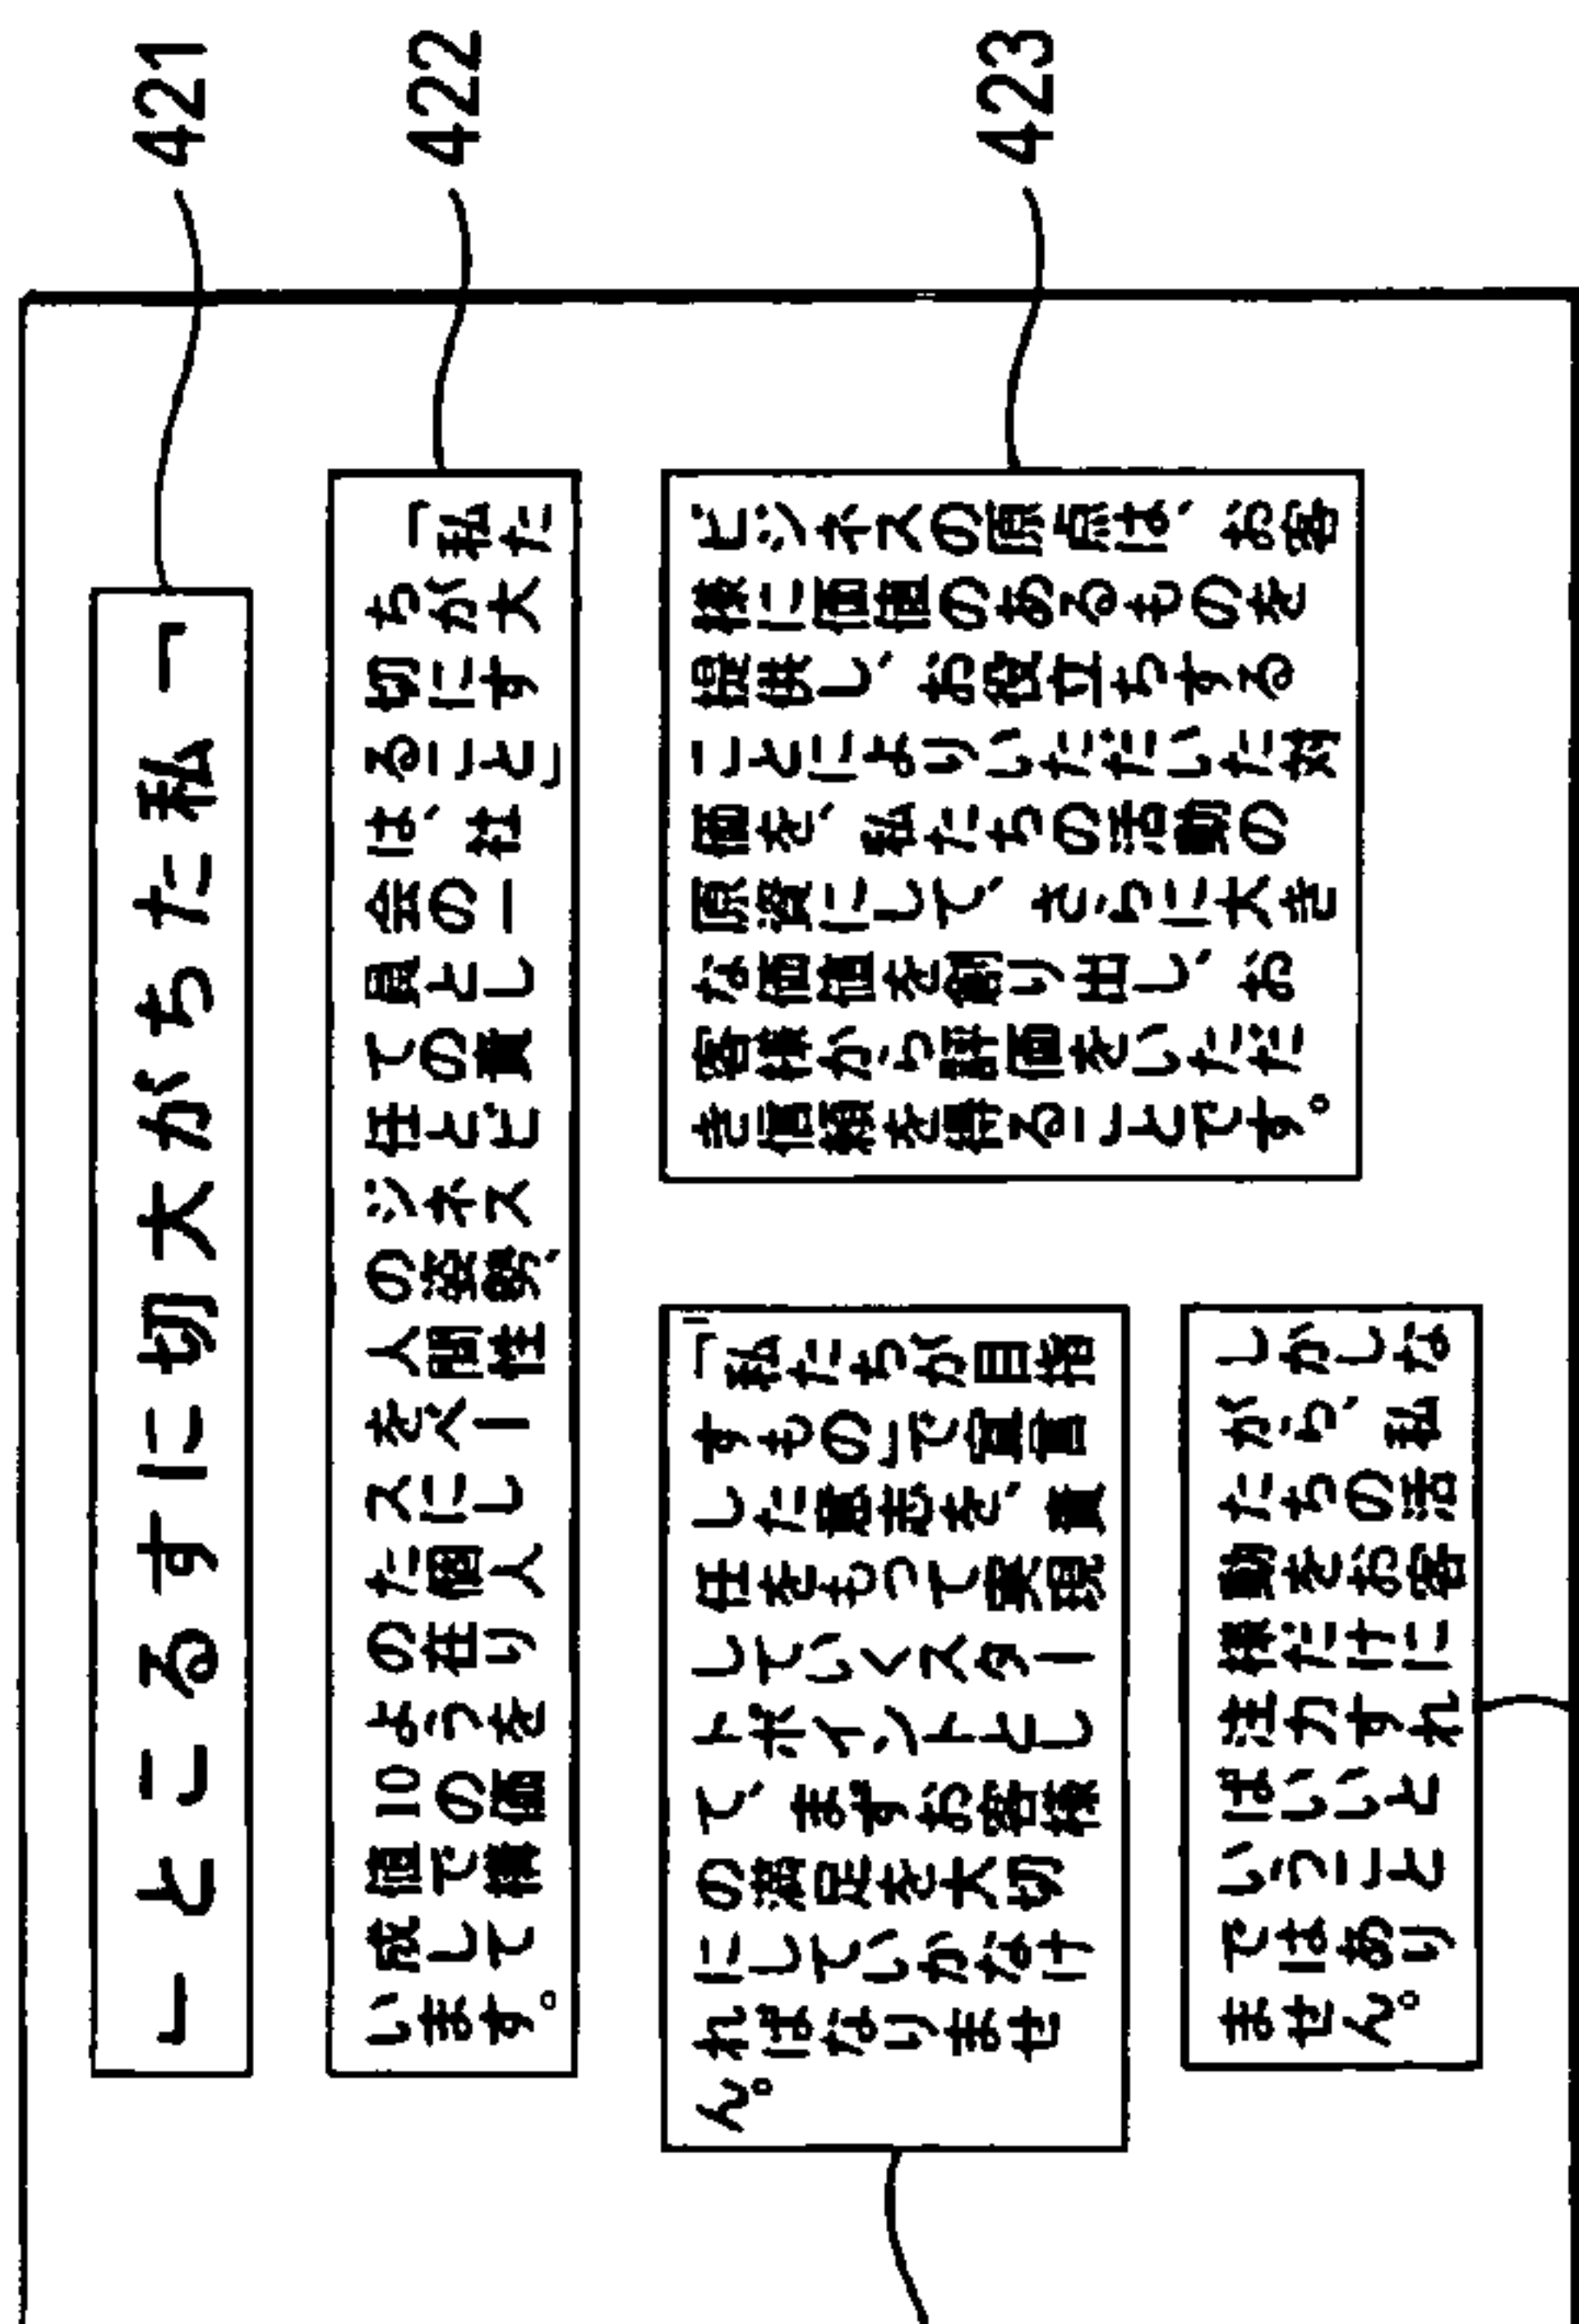 421
422
423
「私たちが大切にすること」
「私た
ちが大
切にす
ること」
は、社
会の一
員とし
ての責
任とビ
ジネス
の姿勢、
人間性
をベー
スにし
た個人
の在り
ようを
10の価
値で構
成して
います。
ビジネスの原点は、お客
様に価値のあるものを
提供し、お役立ちする
ことによりいただいた対
価を、私たちの活動の
原資にして、さらに大き
な価値を創り出し、お
客様から評価をいただ
き信頼を得ることです。
「私たちが目指
すもの」で宣言
した意志を、責
任をもって実現
していくスター
トポイントとし
て、まずお客様
の満足を大切
にしていかなけ
ればなりませ
ん。
しかしな
がら、私
たちの活
動をお客
様だけに
注力すれ
ばいいと
いうこと
ではあり
ません。